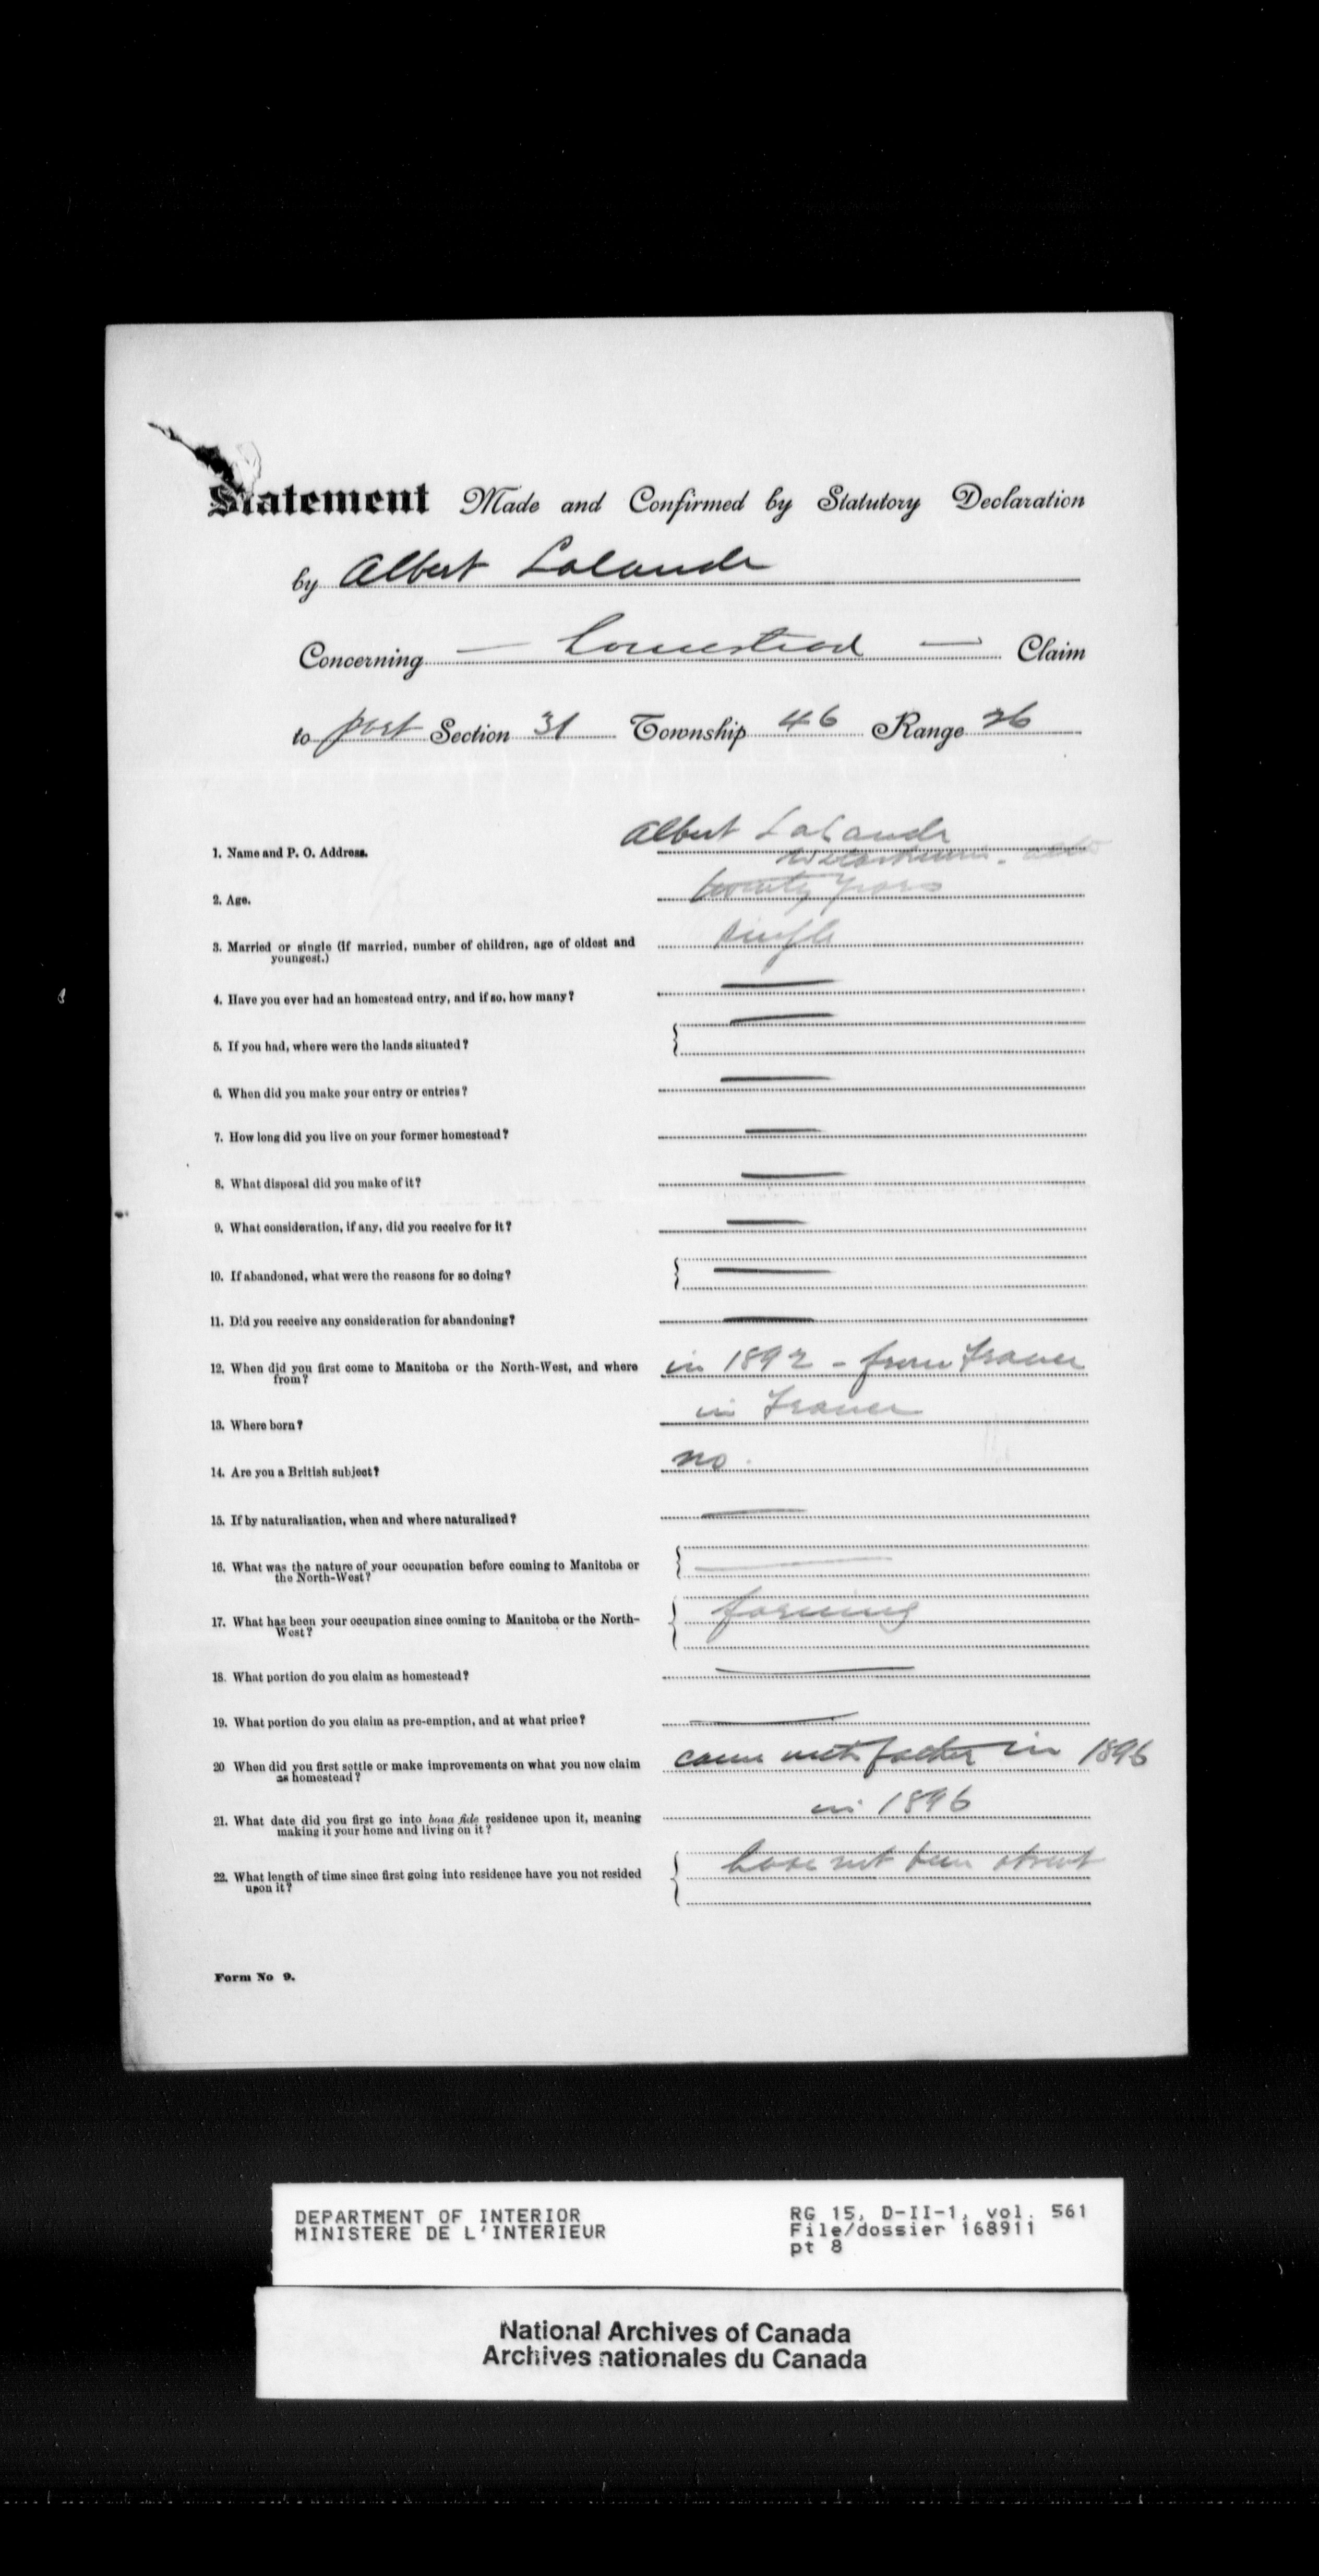 Statement Made and Confirmed by Statutory Declaration
by Albert Lalande
Concerning — homestead — Claim
to part Section 31 Township 46 Range 26
Albert Lalande
1. Name and P. O. Address.
Wetaskiwin. Alta
2. Age. twenty years
3. Married or single (if married, number of children, age of oldest and single
youngest.)
4. Have you ever had an homestead entry, and if so, how many? —
5. If you had, where were the lands situated? —
6. When did you make your entry or entries? —
7. How long did you live on your former homestead? —
8. What disposal did you make of it? —
9. What consideration, if any, did you receive for it? —
10. If abandoned, what were the reasons for so doing? —
11. Did you receive any consideration for abandoning? —
12. When did you first come to Manitoba or the North-West, and where in 1892 - from France
from?
13. Where born? in France
14. Are you a British subject? no.
15. If by naturalization, when and where naturalized? —
16. What was the nature of your occupation before coming to Manitoba or —
the North-West?
17. What has been your occupation since coming to Manitoba or the North- farming
West?
18. What portion do you claim as homestead? —
19. What portion do you claim as pre-emption, and at what price? —
20 When did you first settle or make improvements on what you now claim came with father in 1896
as homestead?
21. What date did you first go into bona fide residence upon it, meaning in 1896
making it your home and living on it?
22. What length of time since first going into residence have you not resided have not been absent
upon it?
Form No 9.
DEPARTMENT OF INTERIOR RG 15, D-II-1, vol. 561
MINISTERE DE L'INTERIEUR File/dossier 168911
pt 8
National Archives of Canada
Archives nationales du Canada